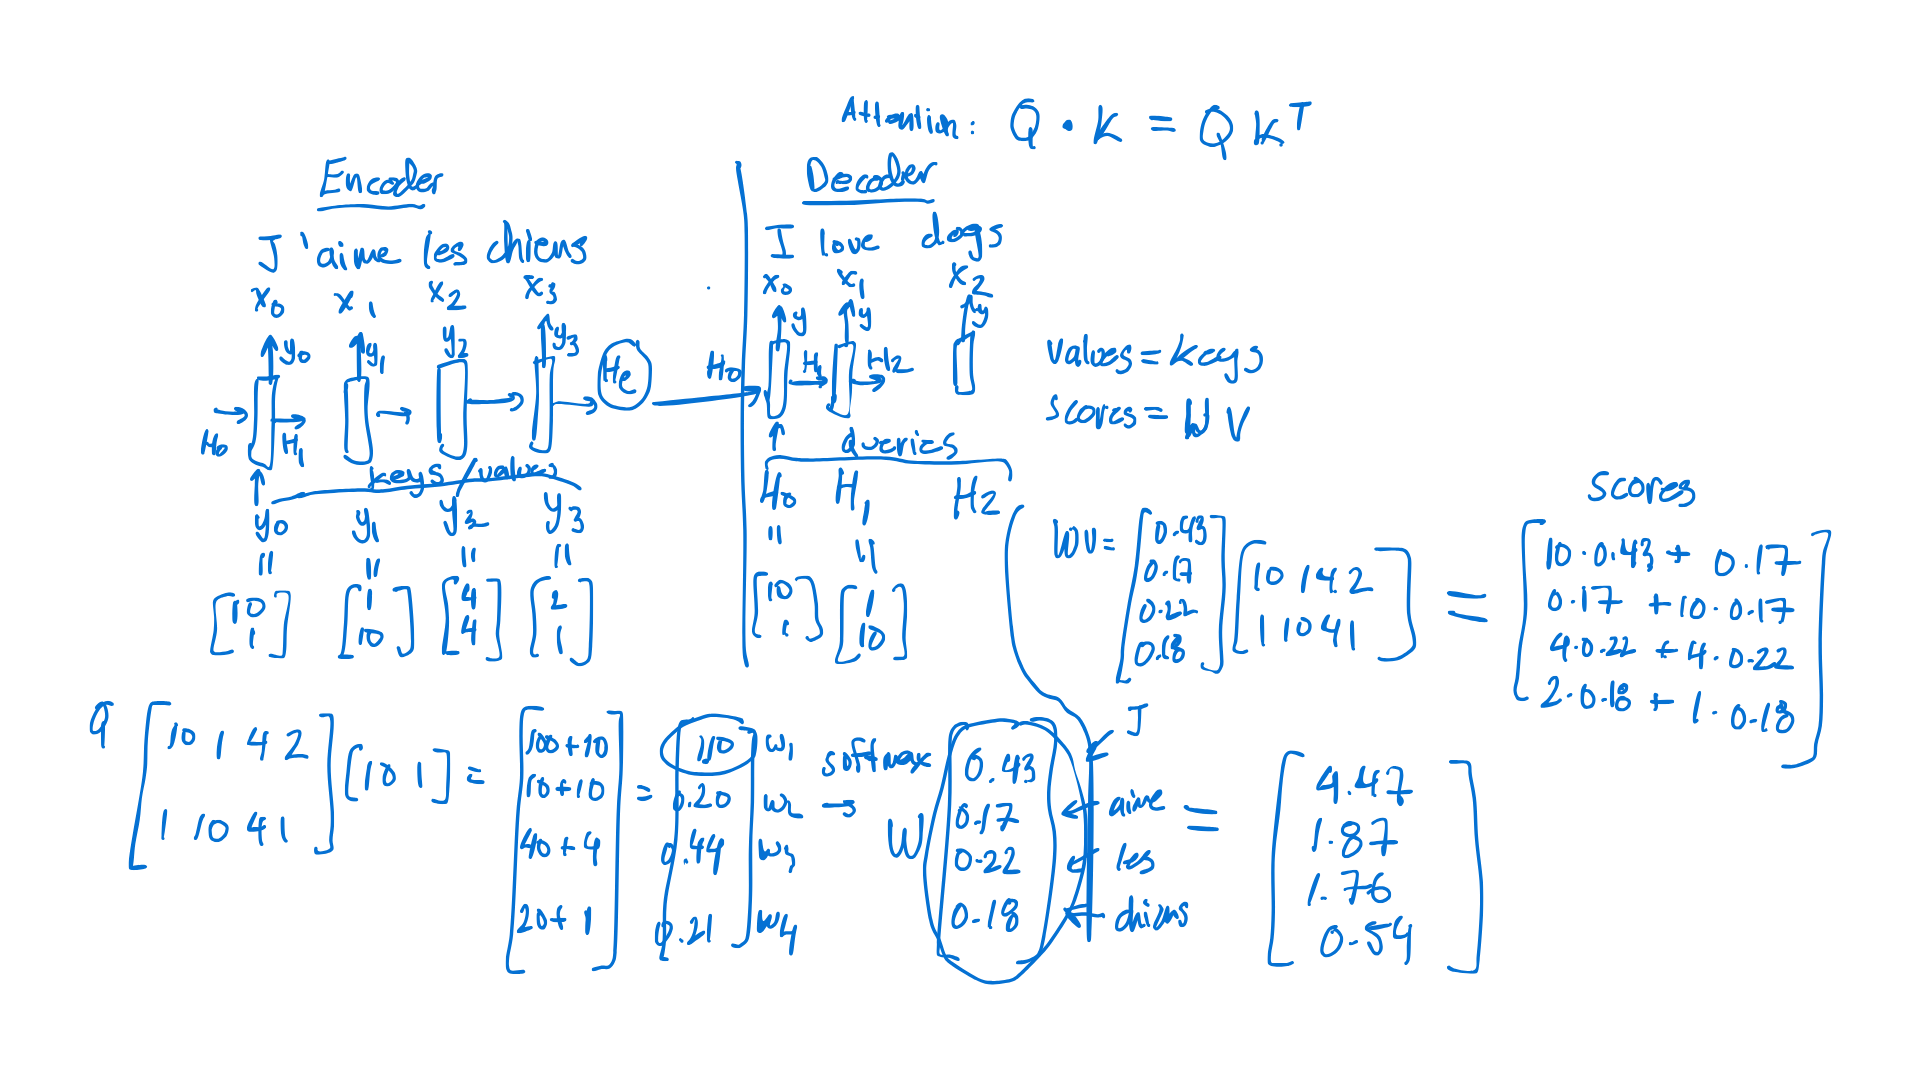 Attention: Q · K = Q K^T
Encoder
J 'aime les chiens
x0 x1 x2 x3
y0 y1 y2 y3
H0 H1 He
keys/values
y0 y1 y2 y3
= = = =
[10 1] [1 10] [4 4] [2 1]
Decoder
I love dogs
x0 x1 x2
y y y
H0 H1 H2
queries
H0 H1 H2
= =
[10 1] [1 10]
values = keys
scores = W V
scores
WV = [0.43 0.17 0.22 0.18] [10 1 4 2
1 10 4 1] =
[10·0.43 + 0.17
0.17 + 10·0.17
4·0.22 + 4·0.22
2·0.18 + 1·0.18]
Q [10 1 4 2
1 10 4 1] [10 1] =
[100+10
10+10
40+4
20+1] =
[110 w1
0.20 w2
0.44 w3
0.21 w4]
softmax →
W [0.43 J
0.17 ← aime
0.22 ← les
0.18 ← chiens]
= [4.47
1.87
1.76
0.54]